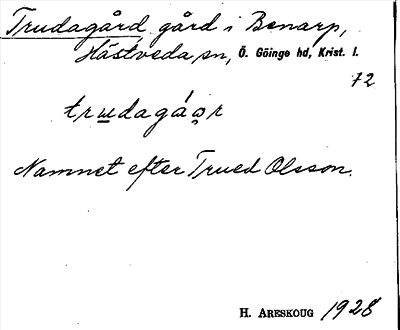 Trudagård, gård i Benarp,
Hästveda sn, Ö. Göinge hd, Krist. l.
72
trudagá̊r
Namnet efter Trued Olsson.
H. ARESKOUG 1928